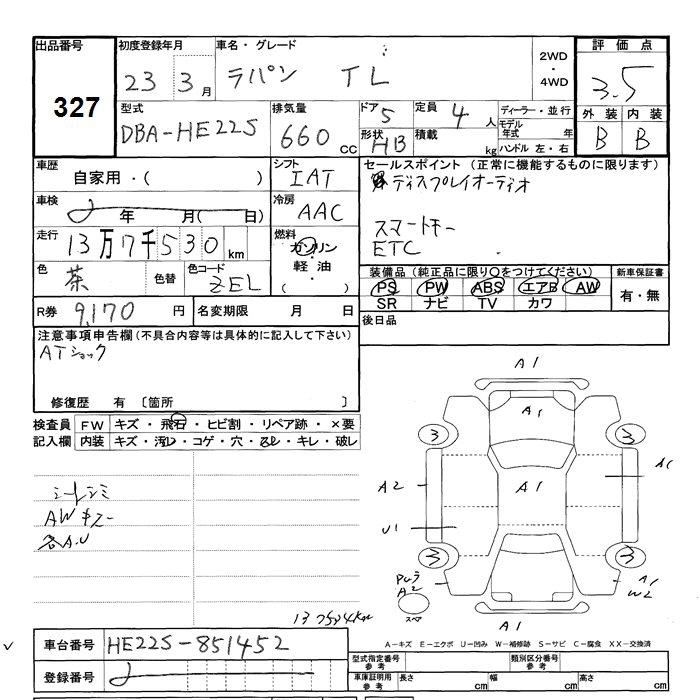 出品番号 初度登録年月 車名・グレード 2WD・4WD 評価点
327 23 3月 ラパン TL 3.5
型式 排気量 ドア 5 定員 4人 ディーラー・並行 外装 内装
DBA-HE22S 660cc 形状 HB 積載 kg モデル年式 年 B B
ハンドル 左・右
車歴 シフト セールスポイント (正常に機能するものに限ります)
自家用・( ) IAT ディスプレイオーディオ
車検 年 月( 日) 冷房 AAC スマートキー
走行 13万7千530km 燃料 ガソリン・軽油・( ) ETC
色 茶 色替 色コード ZEL 装備品 (純正品に限り〇をつけてください) 新車保証書
PS PW ABS エアB AW 有・無
SR ナビ TV カワ
R券 9,170円 名変期限 月 日 後日品
注意事項申告欄 (不具合内容等は具体的に記入して下さい)
ATショック
修復歴 有 〔箇所 〕
検査員 FW キズ・飛石・ヒビ割・リペア跡・×要
記入欄 内装 キズ・汚レ・コゲ・穴・スレ・キレ・破レ
シートシミ
AWキズ
各A.U
A1
A1
3 3
A1
A2 A1
U1
3 3
A2 A1
W2
スペア
A1
137534km
A-キズ E-エクボ U-凹み W-補修跡 S-サビ C-腐食 XX-交換済
車台番号 HE22S-851452 型式指定番号 参考 類別区分番号 参考
登録番号 車庫証明用 参考 長さ cm 幅 cm 高さ cm